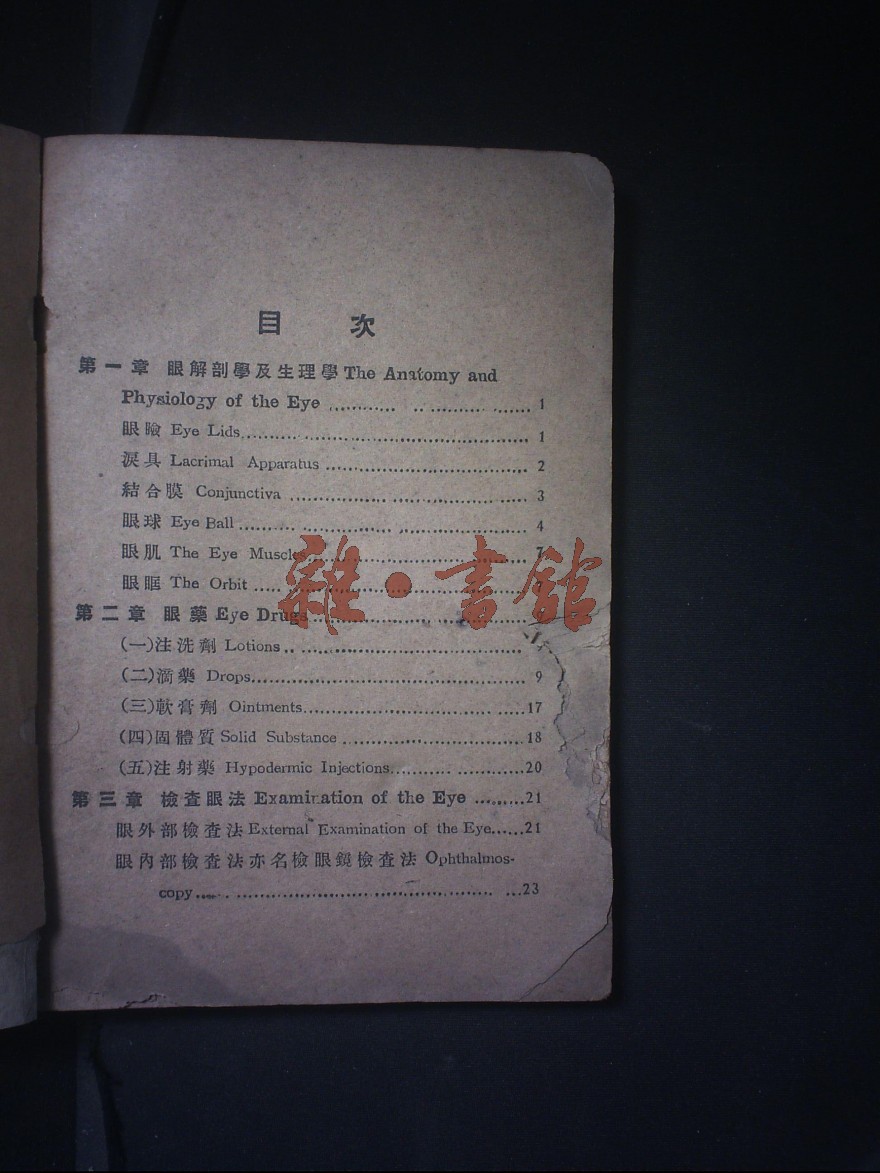 目 次
第一章 眼解剖學及生理學 The Anatomy and
Physiology of the Eye .......... .. .................. 1
眼瞼 Eye Lids.................................................. 1
淚具 Lacrimal Apparatus .................................... 2
結合膜 Conjunctiva .......................................... 3
眼球 Eye Ball .................................................. 4
眼肌 The Eye Muscles........................................ 7
眼眶 The Orbit ................................................
第二章 眼藥 Eye Drugs......................................
(一)注洗劑 Lotions ..........................................
(二)滴藥 Drops................................................ 9
(三)軟膏劑 Ointments........................................17
(四)固體質 Solid Substance ................................18
(五)注射藥 Hypodermic Injections........................20
第三章 檢查眼法 Examination of the Eye ..........21
眼外部檢查法 External Examination of the Eye......21
眼內部檢查法亦名檢眼鏡檢查法 Ophthalmos-
copy.......................................................23
雜·書館